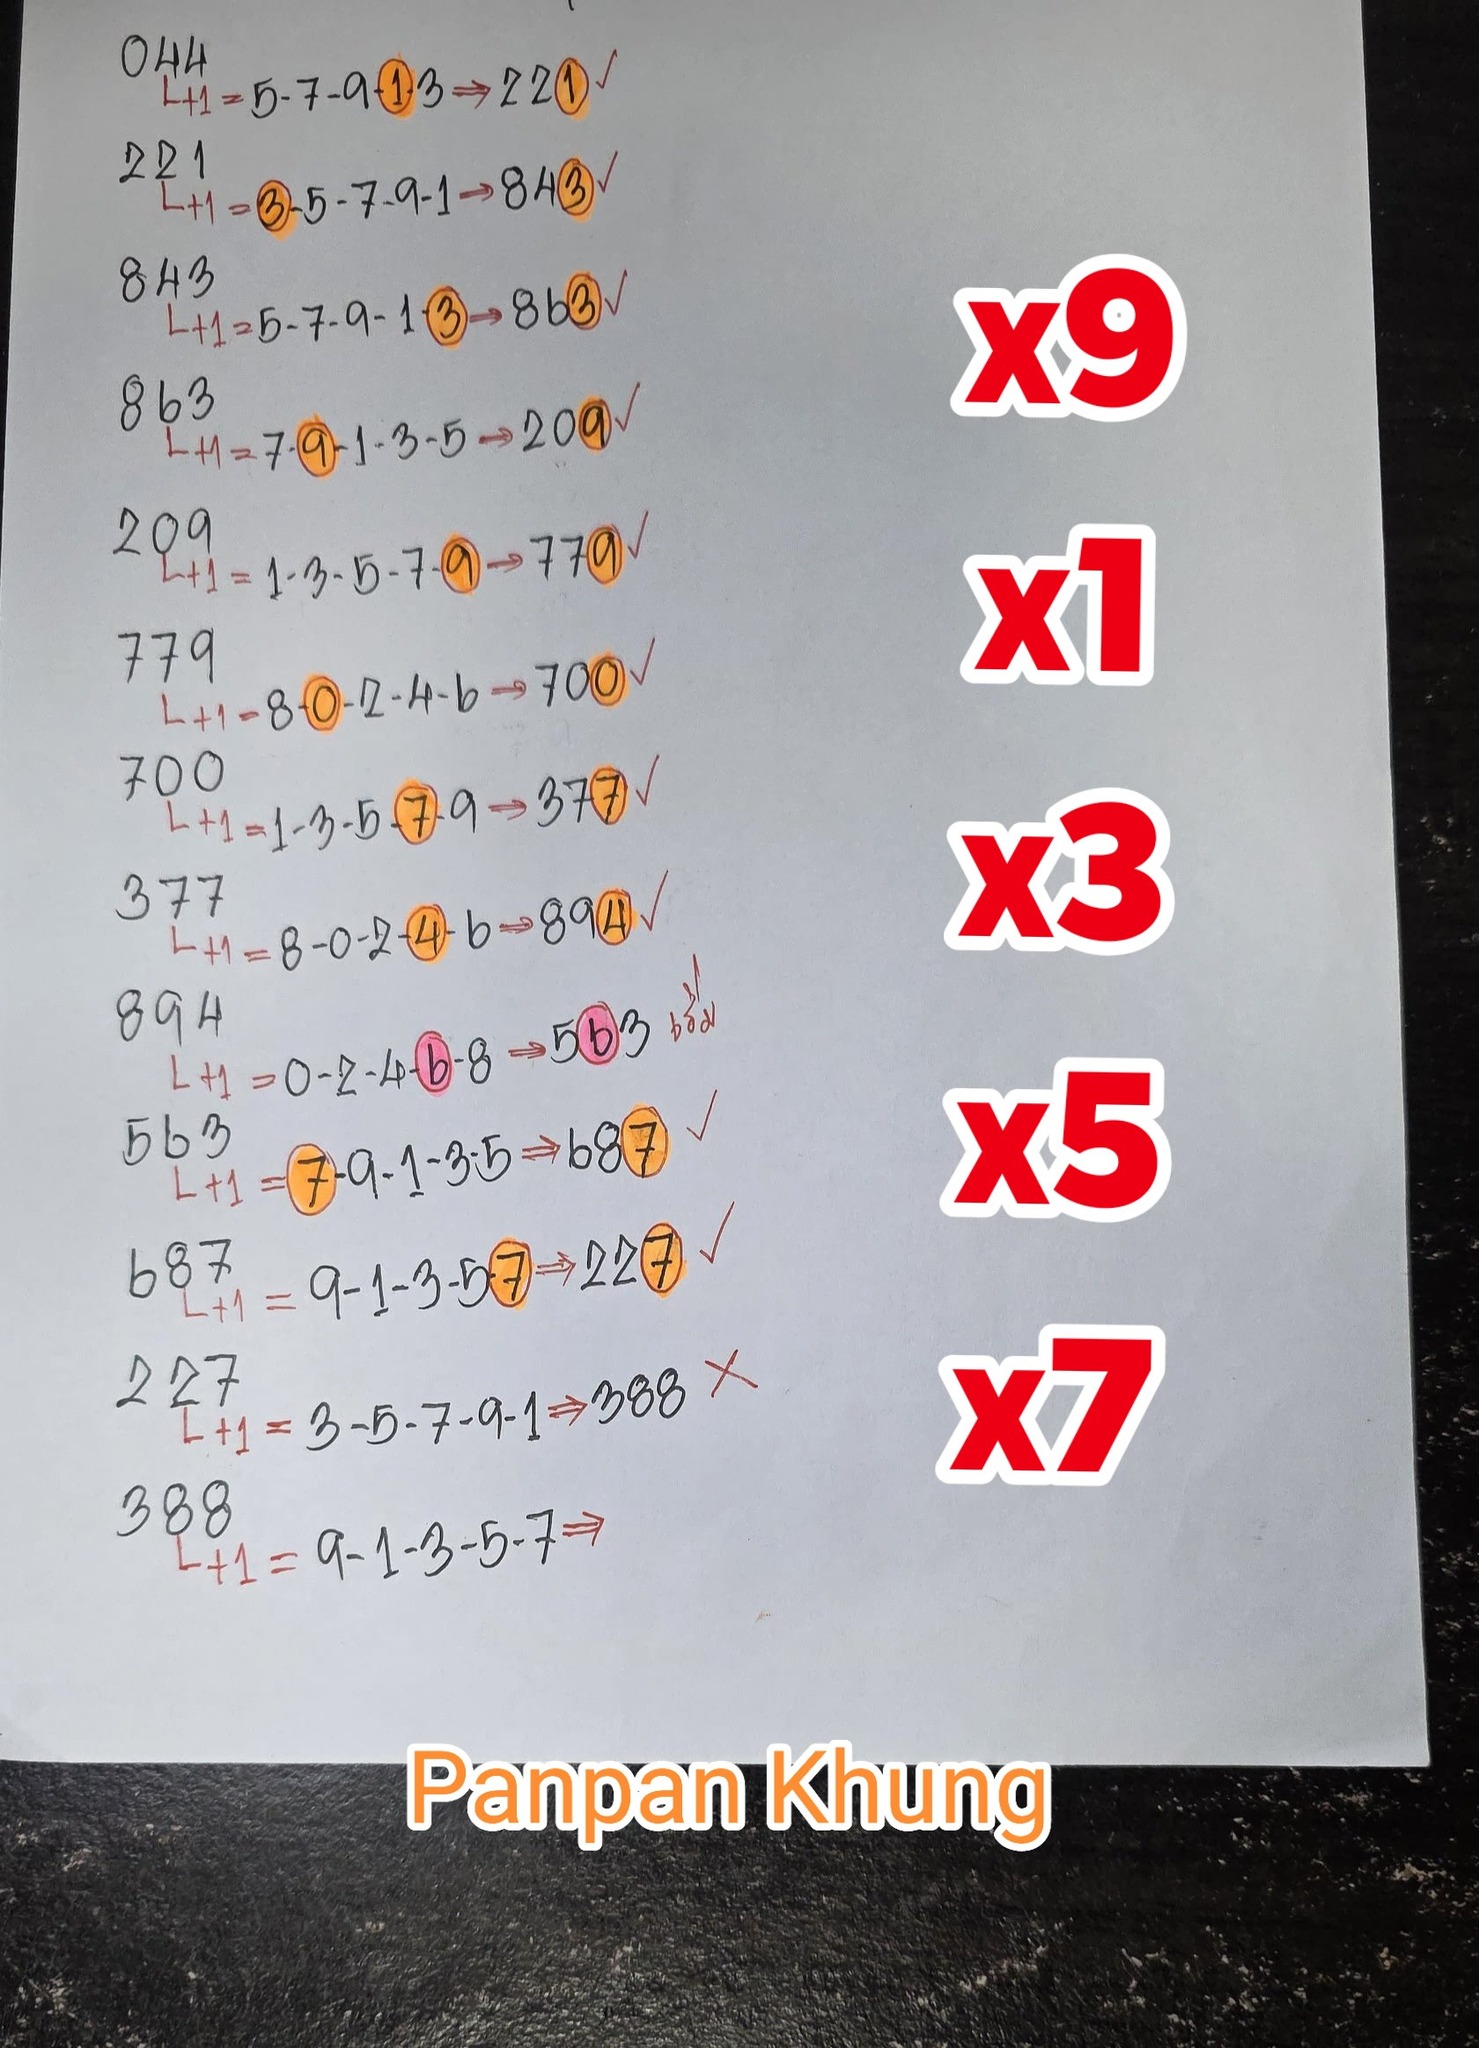 044
L+1 = 5-7-9-1-3 ⇒ 221 ✓
221
L+1 = 3-5-7-9-1 → 843 ✓
843
L+1 = 5-7-9-1-3 → 863 ✓
863
L+1 = 7-9-1-3-5 → 209 ✓
209
L+1 = 1-3-5-7-9 → 779 ✓
779
L+1 = 8-0-2-4-6 → 700 ✓
700
L+1 = 1-3-5-7-9 ⇒ 377 ✓
377
L+1 = 8-0-2-4-6 ⇒ 894 ✓
894
L+1 = 0-2-4-6-8 ⇒ 563
563
L+1 = 7-9-1-3-5 ⇒ 687 ✓
687
L+1 = 9-1-3-5-7 ⇒ 227 ✓
227
L+1 = 3-5-7-9-1 ⇒ 388 ✗
388
L+1 = 9-1-3-5-7 ⇒
x9
x1
x3
x5
x7
Panpan Khung